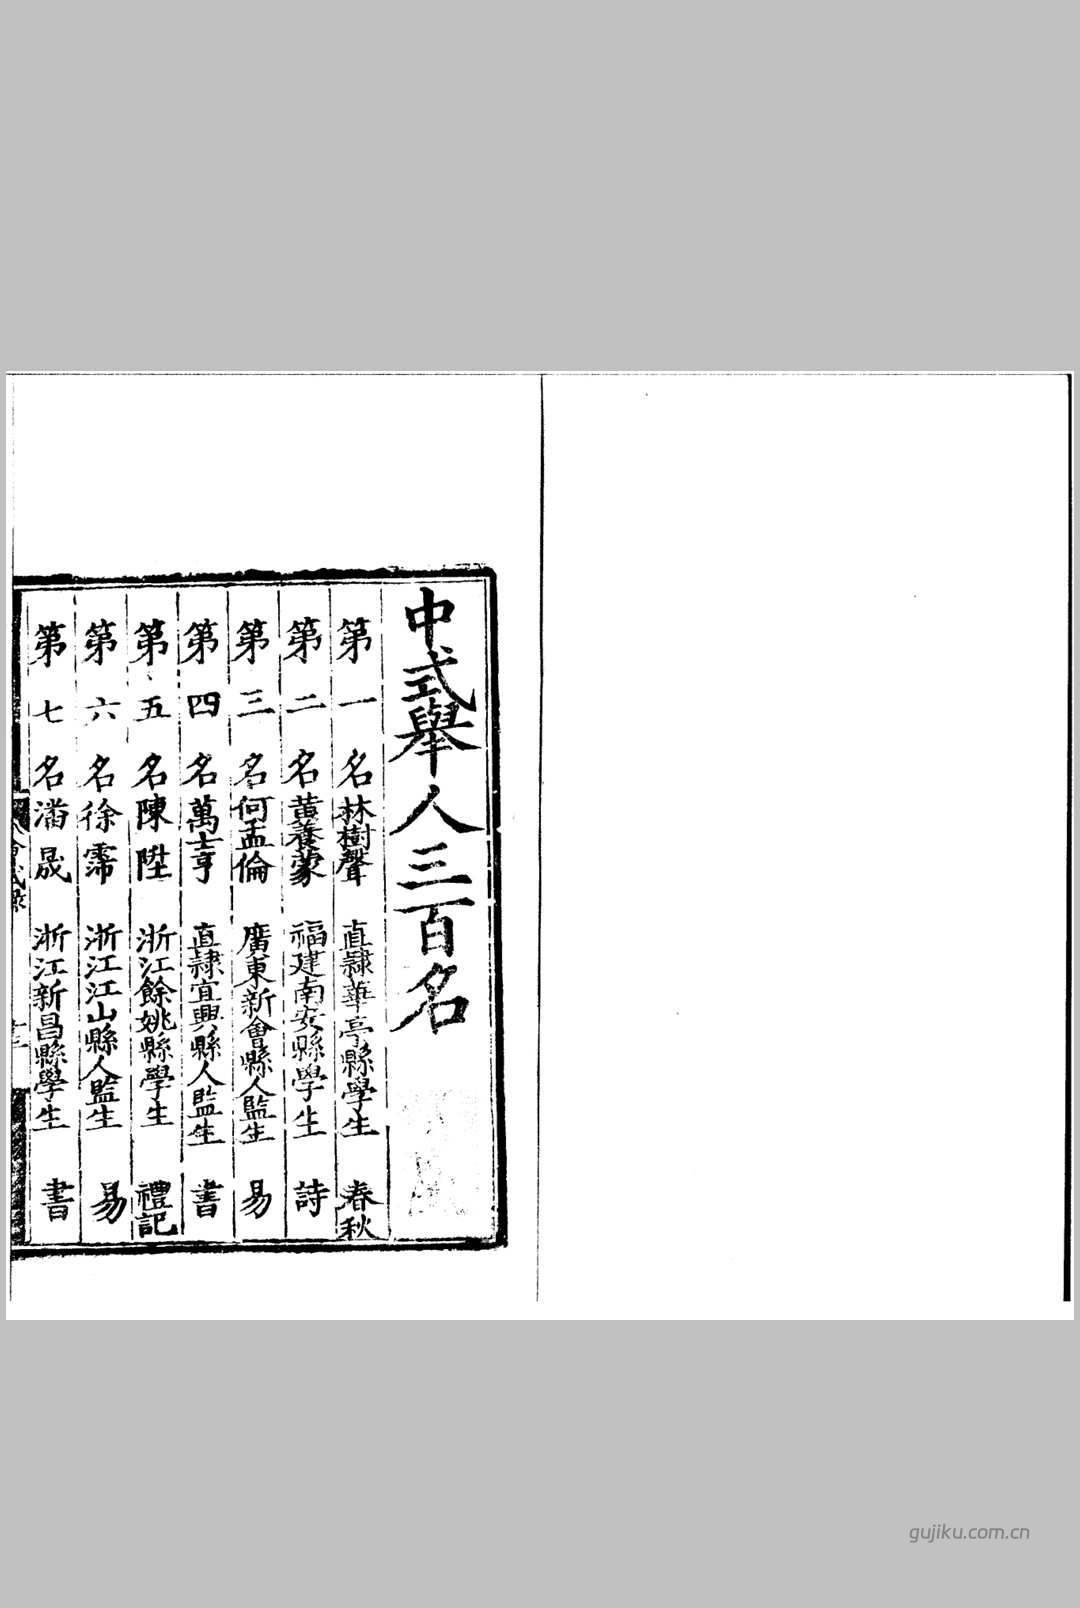 中式舉人三百名
第一名林樹聲 直隸華亭縣學生 春秋
第二名黃養蒙 福建南安縣學生 詩
第三名何孟倫 廣東新會縣人監生 易
第四名萬士亨 直隸宜興縣人監生 書
第五名陳陞 浙江餘姚縣學生 禮記
第六名徐霈 浙江江山縣人監生 易
第七名潘晟 浙江新昌縣學生 書
會式录
gujiku.com.cn